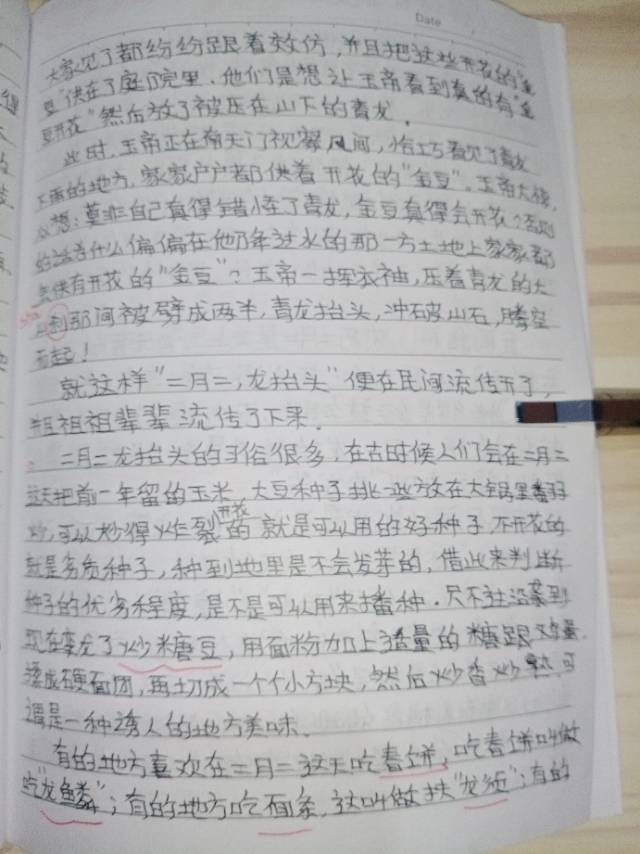 Date
大家见了都纷纷跟着效仿，并且把这些开花的"金
豆"供在了庭院里，他们是想让玉帝看到真的有"金
豆开花"然后放了被压在山下的青龙。
此时，玉帝正在南天门视察凡间，恰巧看见了青龙
下雨的地方，家家户户都供着开花的"金豆"。玉帝大惊，
心想：莫非自己真得错怪了青龙，金豆真得会开花？否则
的话为什么偏偏在他那年过水的那一方土地上家家都
会供有开花的"金豆"？玉帝一挥衣袖，压着青龙的大
山刹那间被劈成两半，青龙抬头，冲破山石，腾空
而起！
就这样"二月二，龙抬头"便在民间流传开了，
祖祖祖辈辈流传了下来。
二月二龙抬头的习俗很多，在古时候人们会在二月二
这天把前一年留的玉米，大豆种子挑一些放在大锅里翻
炒，可以炒得炸裂开花的就是可以用的好种子，不开花的
就是劣质种子，种到地里是不会发芽的，借此来判断
种子的优劣程度，是不是可以用来播种。只不过沿袭到
现在变成了炒糖豆，用面粉加上适量的糖跟鸡蛋
揉成硬面团，再切成一个个小方块，然后炒香炒熟，可
谓是一种诱人的地方美味、
有的地方喜欢在二月二这天吃春饼，吃春饼叫做
吃"龙鳞"；有的地方吃面条，这叫做扶"龙须"；有的